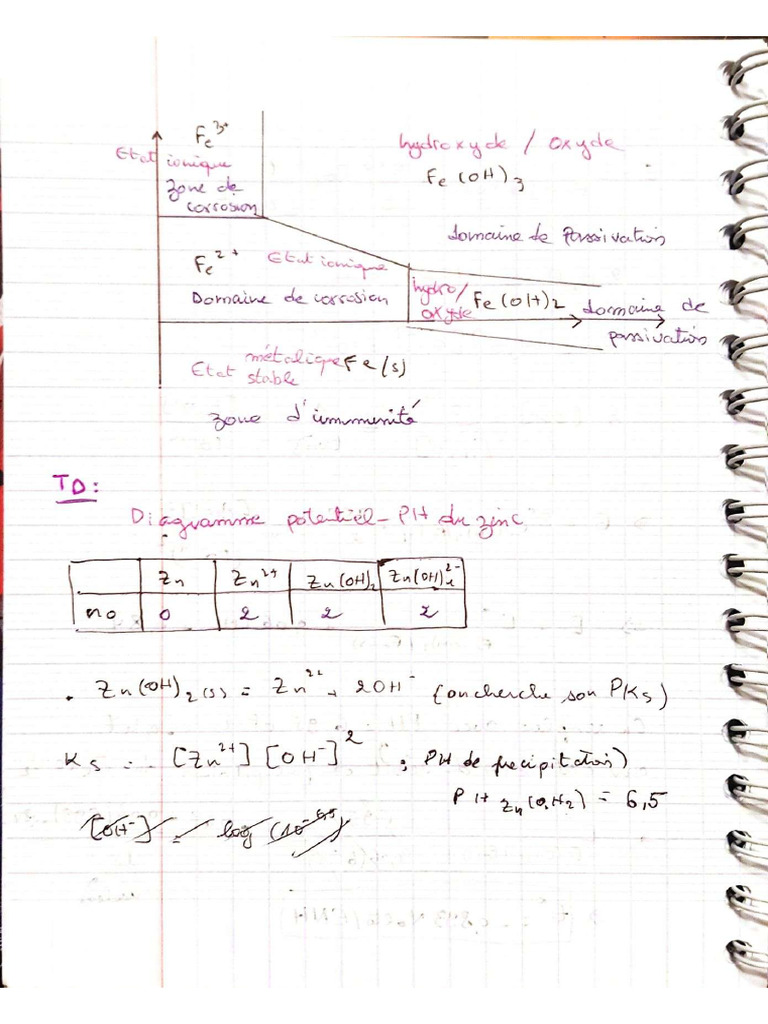 Fe³⁺
Etat ionique
zone de
corrosion
hydroxyde / oxyde
Fe(OH)₃
domaine de Passivation
Fe²⁺ Etat ionique
Domaine de corrosion
hydro/
oxyde Fe(OH)₂ domaine de
passivation
Etat métalique Fe(s)
stable
zone d'immunité
TD:
Diagramme potentiel-PH du zinc
Zn Zn²⁺ Zn(OH)₂ Zn(OH)₄²⁻
no 0 2 2 2
. Zn(OH)₂(s) = Zn²⁺ + 2OH⁻ (on cherche son PKs)
Ks = [Zn²⁺][OH⁻]² ; PH de precipitation)
PH Zn(OH₂) = 6,5
[OH⁻] = log(10⁻⁶·⁵)